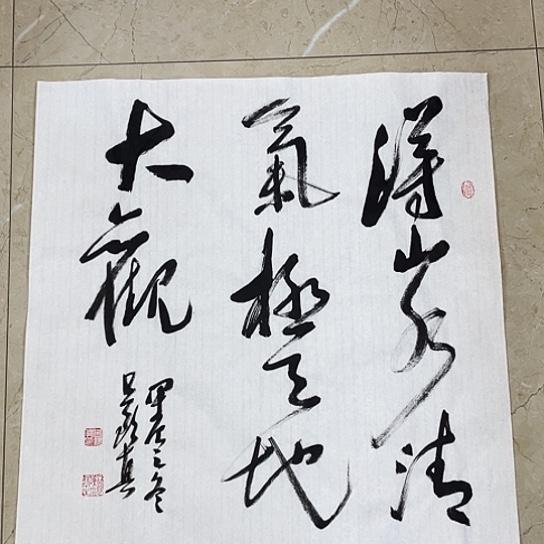 得山水清
氣極天地
大觀
甲辰之冬